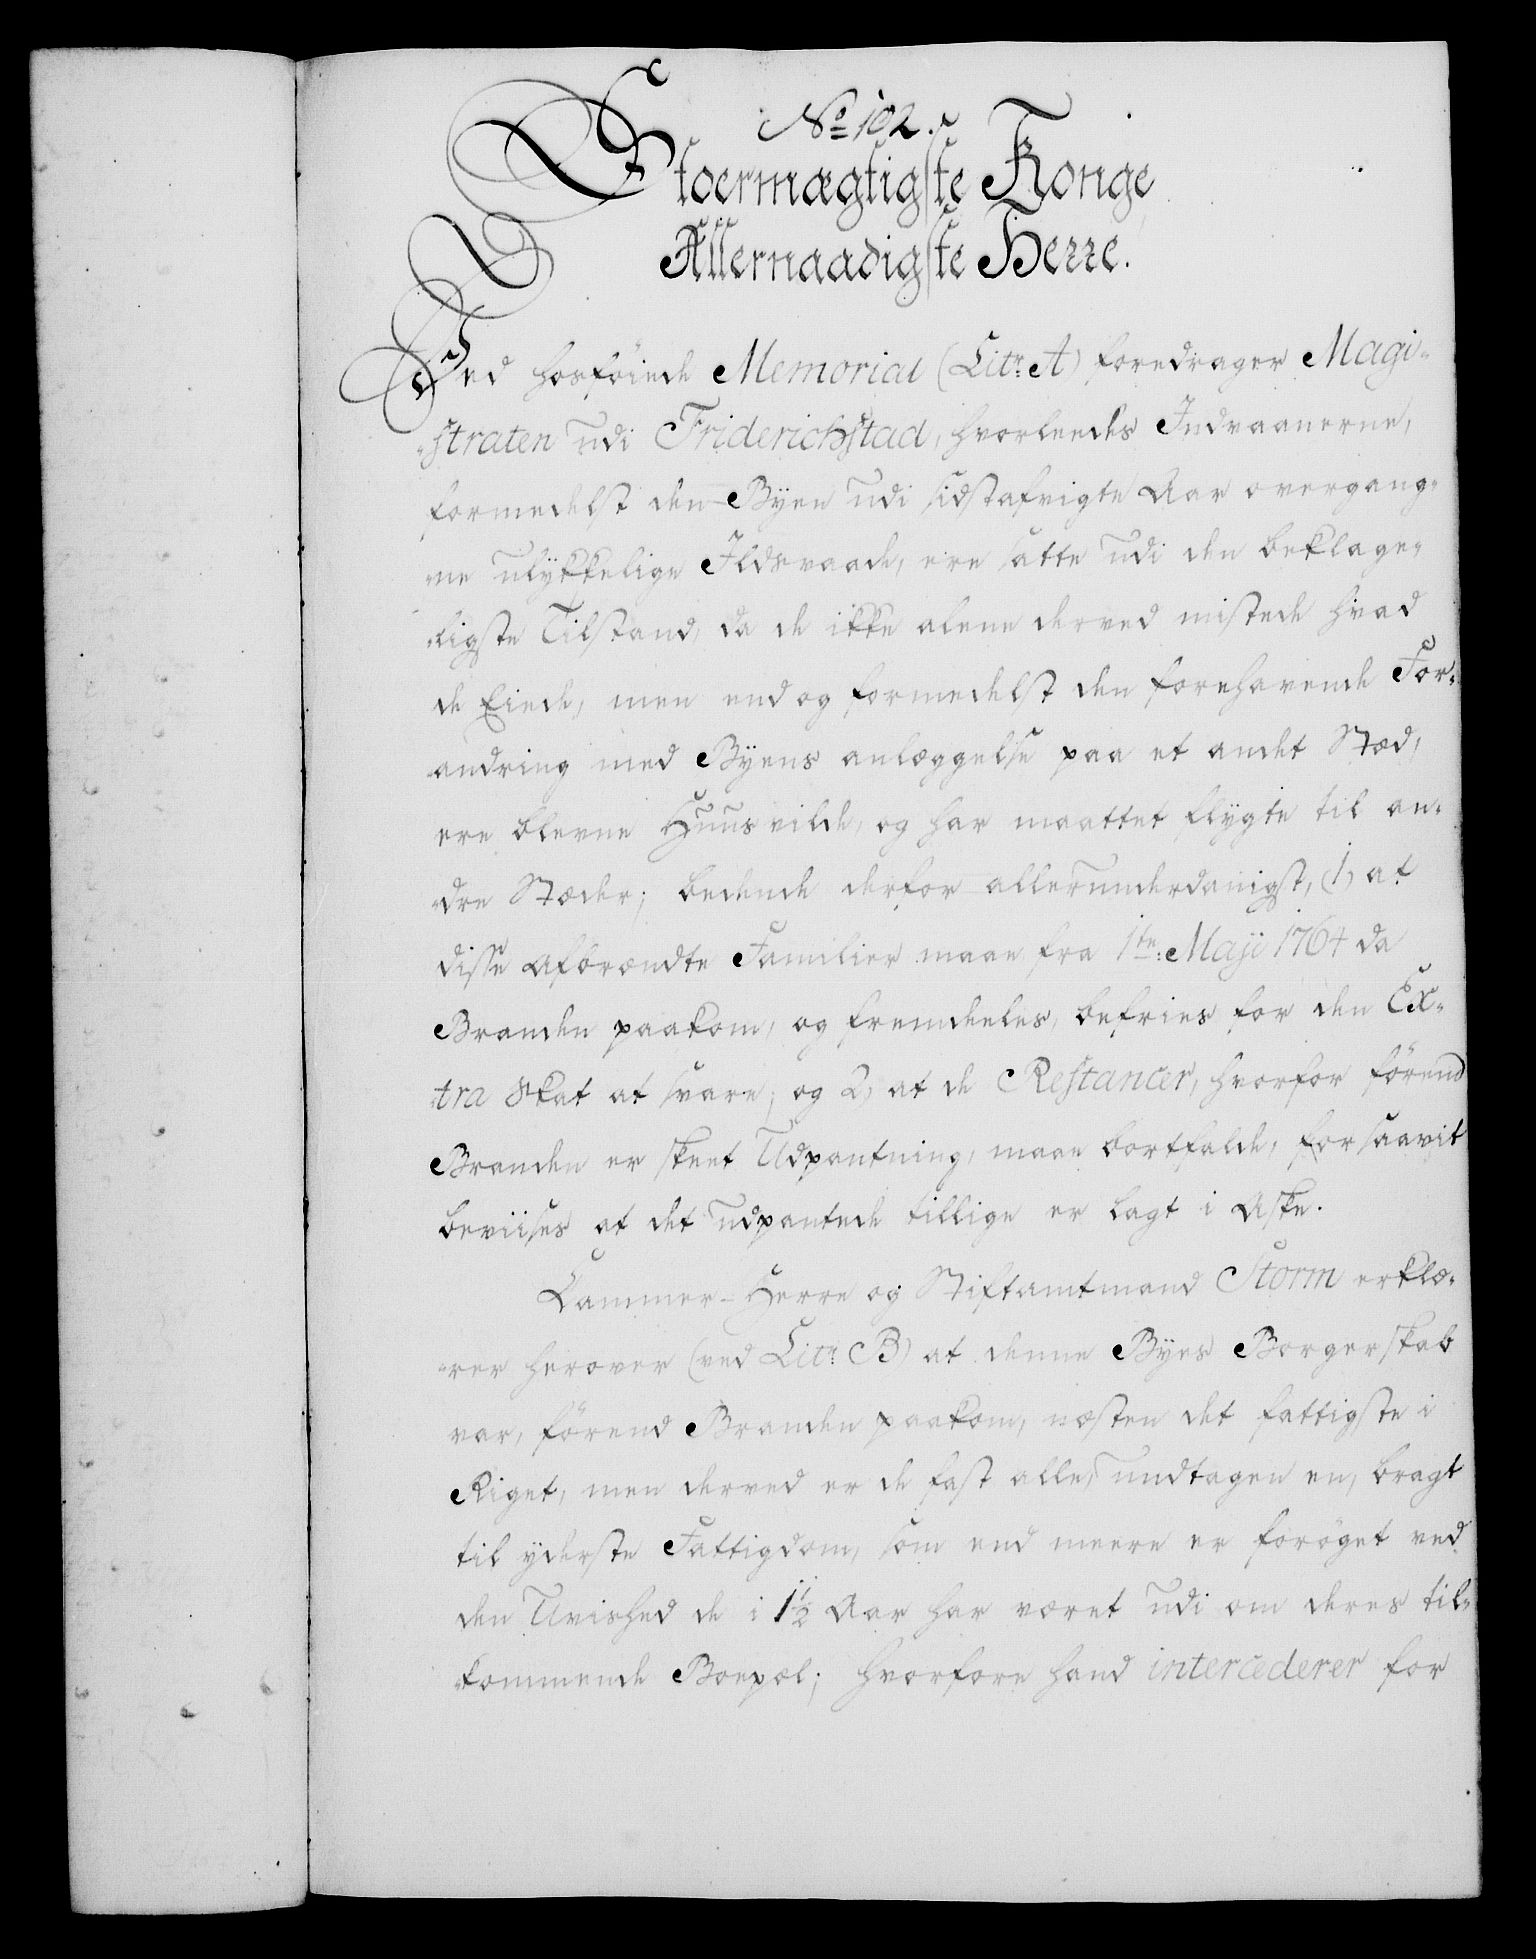 No 102.
Stoermægtigste Konge
Allernaadigste Herre.
Ved hosföiede Memorial (Litr. A) foredrager Magi-
straten udi Friderichstad, hvorleedes Indvaanerne,
formedelst den Byen udi sidstafvigte Aar overgang-
ne ulykkelige Ildsvaade, ere satte udi den beklage-
ligste Tilstand, da de ikke alene derved mistede hvad
de Eiede, men end og formedelst den forehavende For-
andring med Byens anlæggelse paa et andet Stæd,
ere blevne Huusvilde, og har maattet flygte til an-
dre Stæder; bedende derfor allerunderdanigst, (1, at
disse Afbrændte Familier maae fra 1te. Maji 1764 da
Branden paakom, og fremdeeles, befries for den Ex-
tra Skat at svare; og 2, at de Restancer, hvorfor förend
Branden er skeet Udpantning, maae bortfalde, forsaavit
beviises at det udpantede tillige er lagt i Aske.
Cammer-Herre og Stiftamtmand Storm erklæ-
rer herover (ved Litr. B) at denne Byes Borgerskab
var, förend Branden paakom, næsten det fattigste i
Riget, men derved er de fast alle, undtagen en, bragt
til yderste Fattigdom, som end meere er foröget ved
den Uvished de i 1½ Aar har været udi om deres til-
kommende Boepæl; hvorfore hand intercederer for